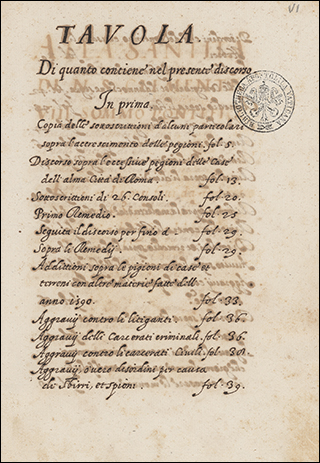 VI
TAVOLA
Di quanto contiene nel presente discorso
In prima.
Copia delle soscrizioni d'alcuni particolari
sopra l'accrescimento delle pegioni. fol. 5.
Discorso sopra l'eccessive pegioni delle Case
dell'alma Città di Roma fol. 13.
Soscrizioni di 26. Consoli. fol. 20.
Primo Remedio. fol. 25
Seguita il discorso per fino a fol. 29.
Sopra li Remedij fol. 29.
Additioni sopra le pigioni di case et
terreni con altre materie fatte dell'
anno 1590. fol. 33.
Aggravij contro le litiganti fol. 36.
Aggravij delli Carcerati criminali. fol. 36.
Aggravij contro li carzerati Civili. fol. 38.
Aggravij, o vero desordini per causa
de Sbirri, et spioni. fol. 39.